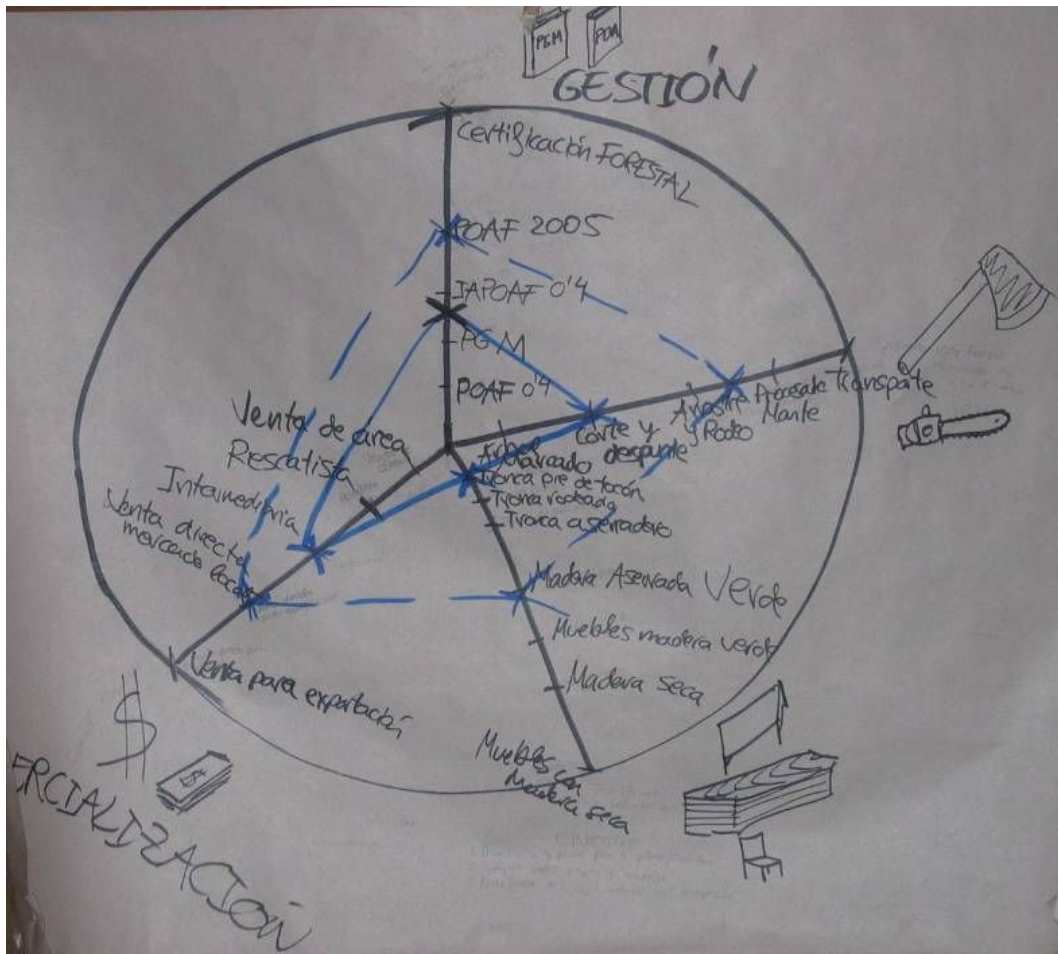 PGM
POA
GESTIÓN
Certificación FORESTAL
POAF 2005
IAPOAF 0'4
PGM
POAF 0'4
Transporte
Arrastre
Rodeo
Corte y
despunte
Arbol
marcado
Venta de área
Rescatista
Intermediario
Venta directa
mercado local
Venta para exportación
Tronca pie de tocón
Tronca rodeada
Tronca aserradero
Madera Aserrada Verde
Muebles madera verde
Madera seca
Muebles con
Madera seca
$
$
ERCIALIZACIÓN